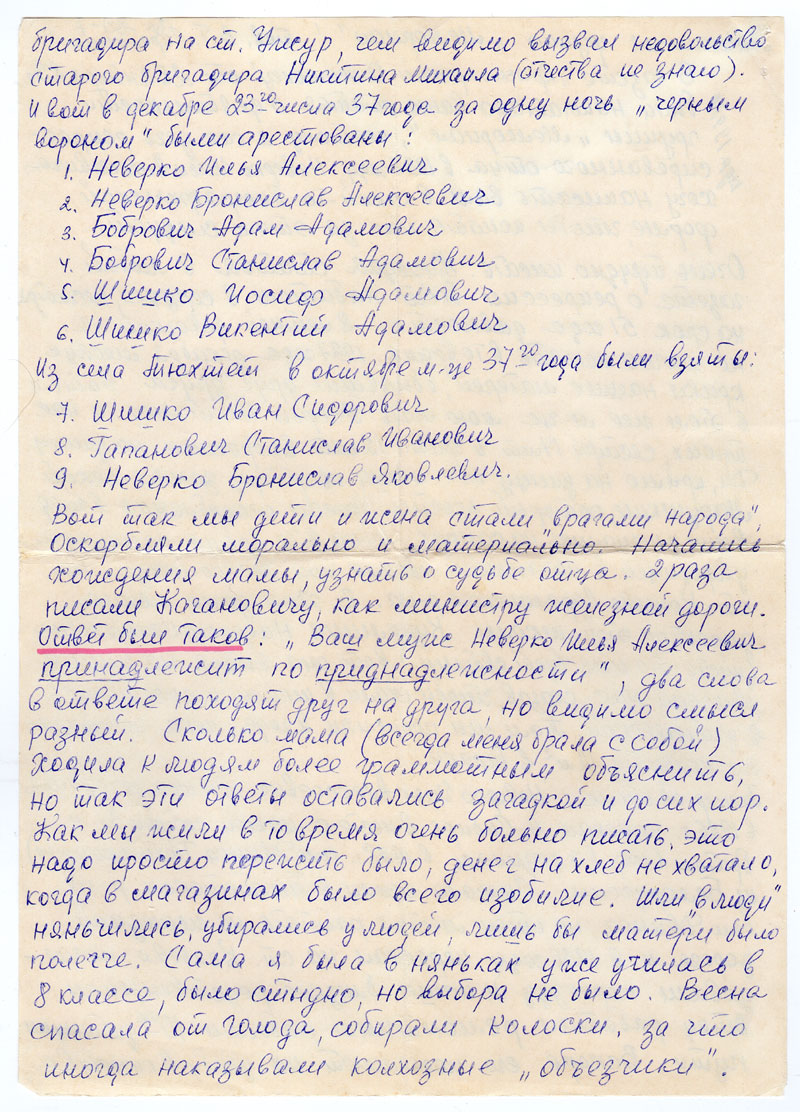 бригадира на ст. Чисур, чем видимо вызвал недовольство
старого бригадира Никитина Михаила (отчества не знаю).
И вот в декабре 23го числа 37 года за одну ночь „черным
вороном" были арестованы:
1. Неверко Илья Алексеевич
2. Неверко Бронислав Алексеевич
3. Бобрович Адам Адамович
4. Бобрович Станислав Адамович
5. Шишко Иосиф Адамович
6. Шишко Викентий Адамович
Из села Тюхтет в октябре м-це 37го года были взяты:
7. Шишко Иван Сидорович
8. Гапанович Станислав Иванович
9. Неверко Бронислав Яковлевич.
Вот так мы дети и жена стали „врагами народа".
Оскорбляли морально и материально. Начались
хождения мамы, узнать о судьбе отца. 2 раза
писали Кагановичу, как министру железной дороги.
Ответ был таков: „Ваш муж Неверко Илья Алексеевич
принадлежит по приднадлежности", два слова
в ответе походят друг на друга, но видимо смысл
разный. Сколько мама (всегда меня брала с собой)
ходила к людям более граммотным объяснить,
но так эти ответы оставались загадкой и до сих пор.
Как мы жили в то время очень больно писать, это
надо просто пережить было, денег на хлеб не хватало,
когда в магазинах было всего изобилие. Шли „в люди"
няньчились, убирались у людей, лишь бы матери было
полегче. Сама я была в няньках уже училась в
8 классе, было стыдно, но выбора не было. Весна
спасала от голода, собирали колоски, за что
иногда наказывали колхозные „объезчики".